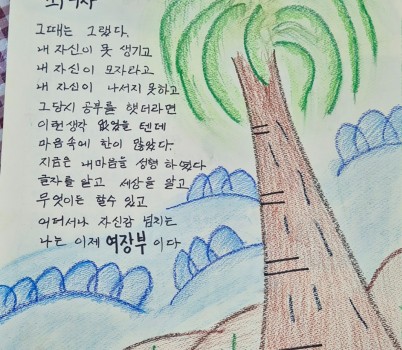 그때는 그랬다.
내 자신이 못 생기고
내 자신이 모자라고
내 자신이 나서지 못하고
그당시 공부를 했더라면
이런생각 없었을 텐데
마음속에 한이 많았다.
지금은 내마음을 성형 하였다
글자를 알고 세상을 알고
무엇이든 할수 있고
어디서나 자신감 넘치는
나는 이제 여장부 이다